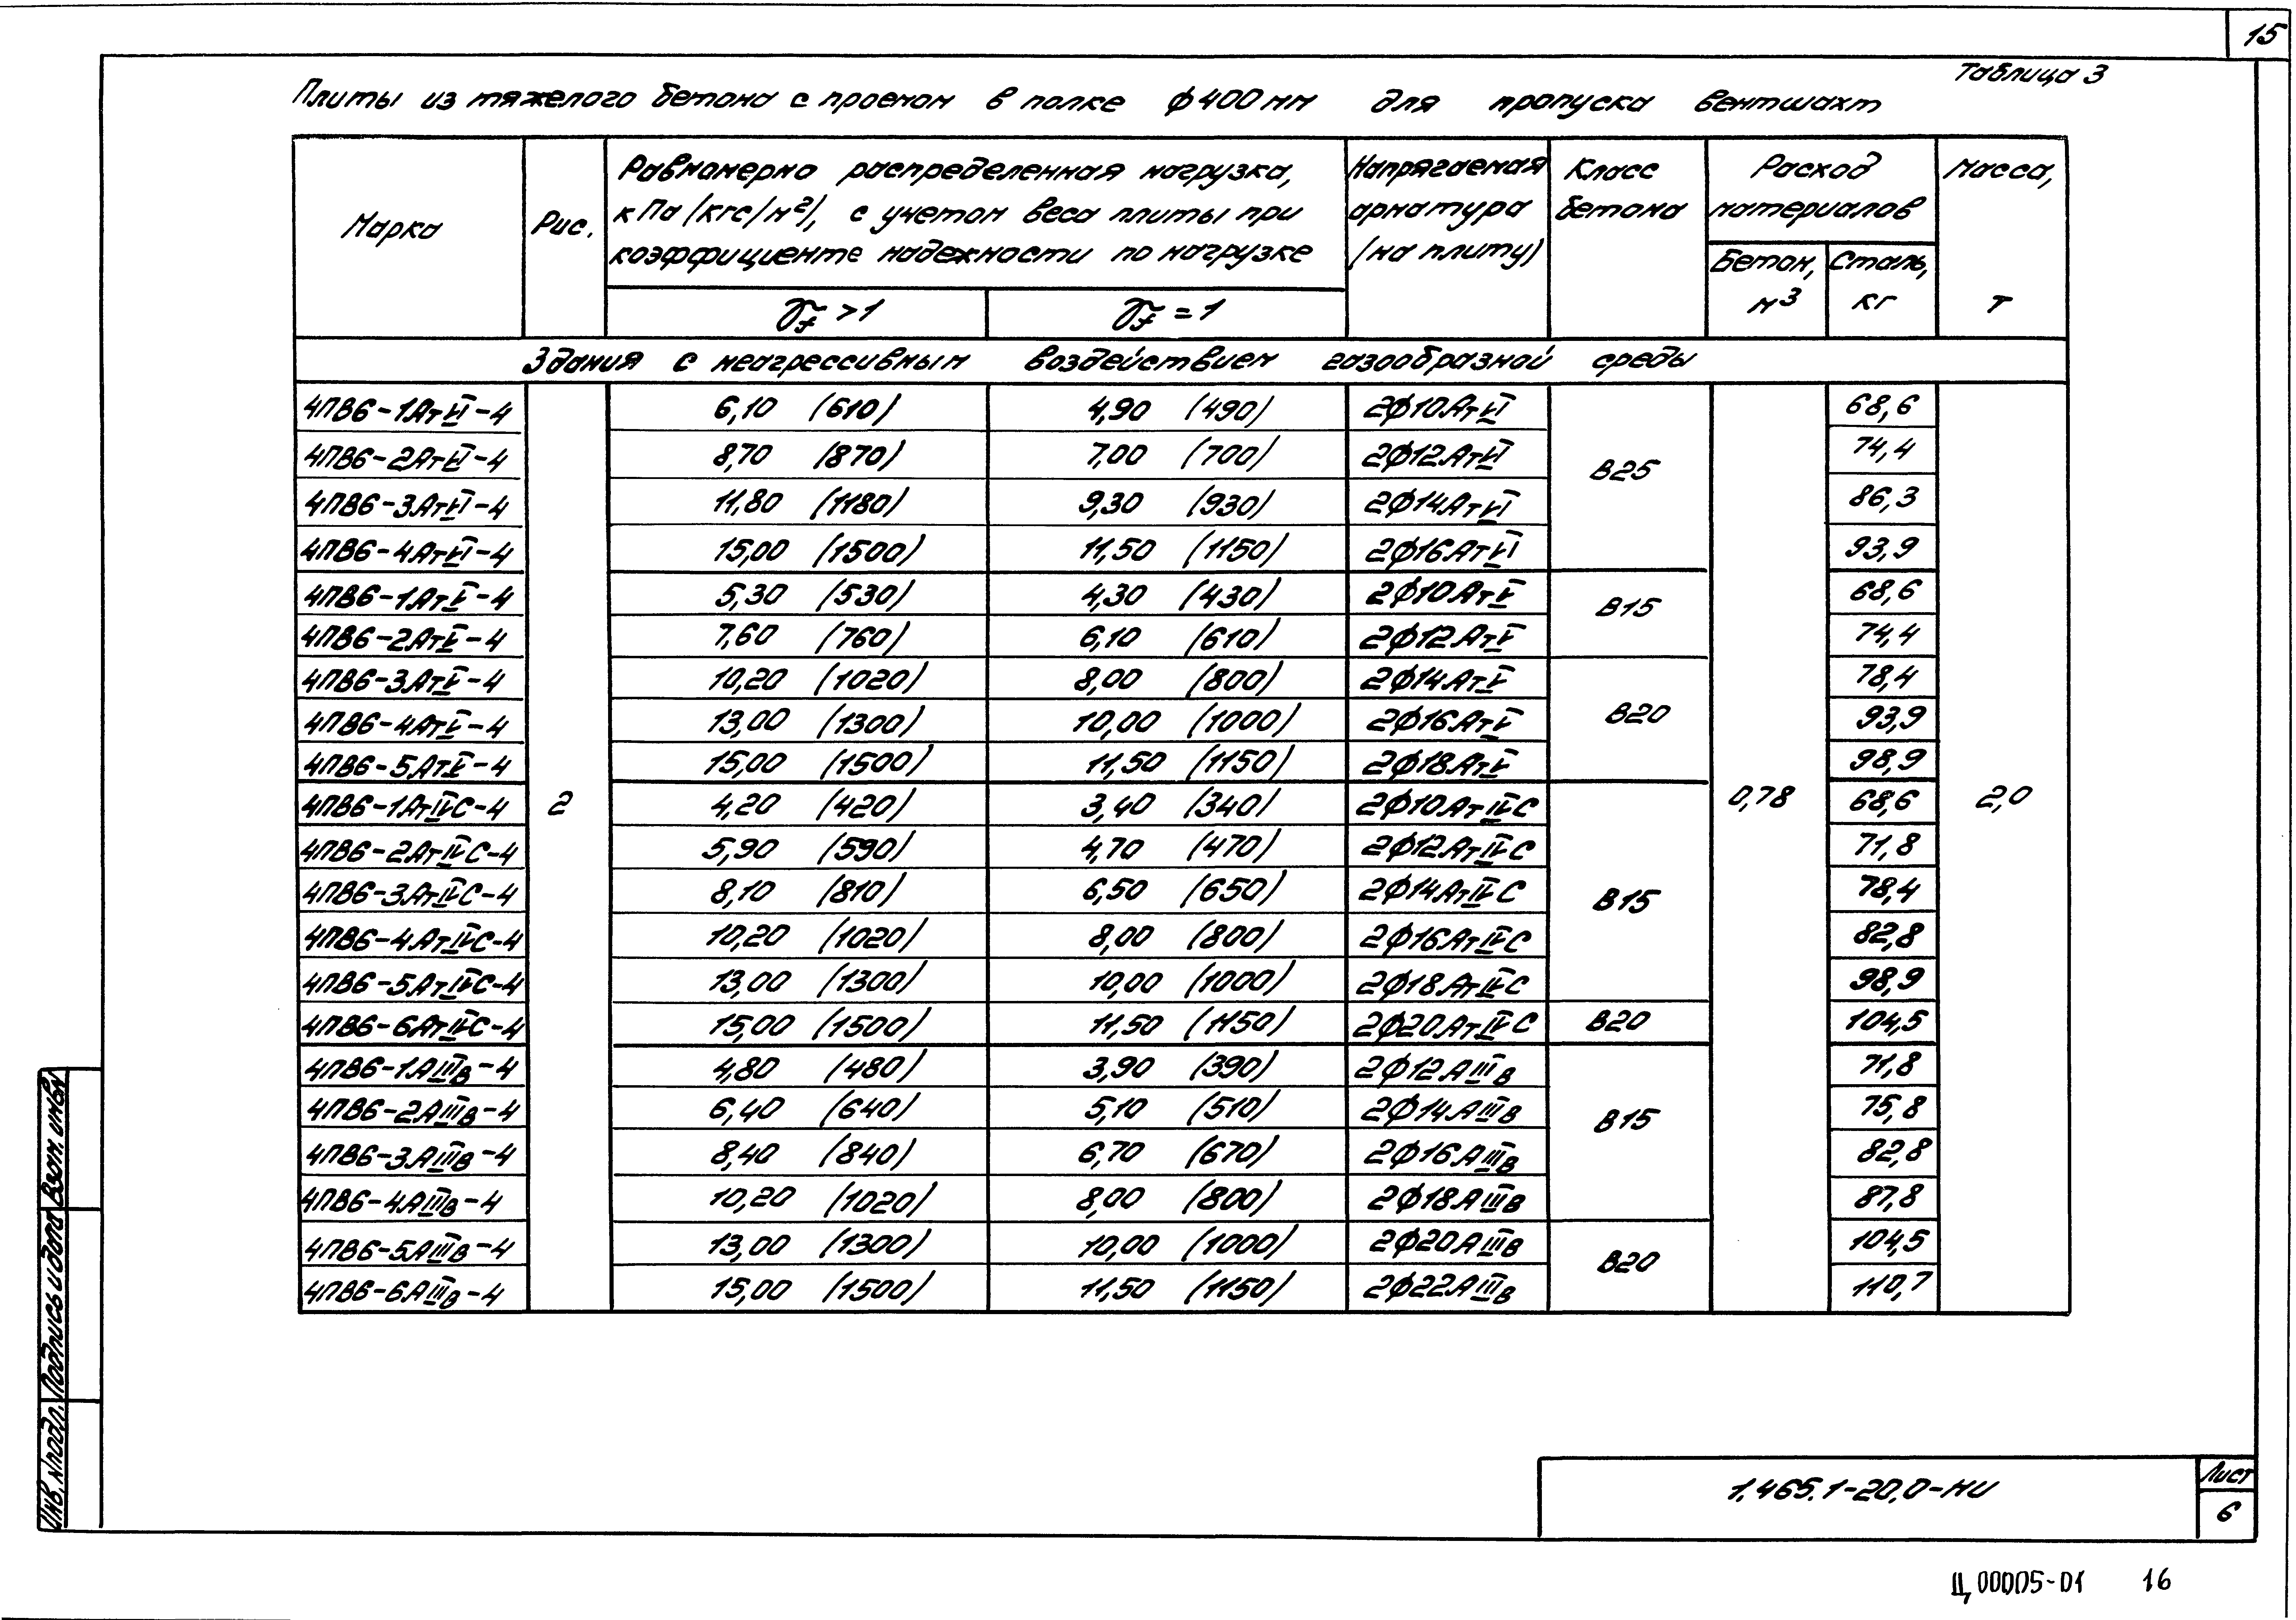 15
Таблица 3
Плиты из тяжелого бетона с проемом в полке ф400мм для пропуска вентшахт
Марка
Рис.
Равномерно распределенная нагрузка,
кПа (кгс/м²), с учетом веса плиты при
коэффициенте надежности по нагрузке
γf >1
γf = 1
Напрягаемая
арматура
(на плиту)
Класс
бетона
Расход
материалов
Бетон,
м3
Сталь,
кг
Масса,
т
Здания с неагрессивным воздействием газообразной среды
4ПВ6-1АтVI-4 6,10 (610) 4,90 (490) 2ф10АтVI 68,6
4ПВ6-2АтVI-4 8,70 (870) 7,00 (700) 2ф12АтVI 74,4
В25
4ПВ6-3АтVI-4 11,80 (1180) 9,30 (930) 2ф14АтVI 86,3
4ПВ6-4АтVI-4 15,00 (1500) 11,50 (1150) 2ф16АтVI 93,9
4ПВ6-1АтV-4 5,30 (530) 4,30 (430) 2ф10АтV 68,6
В15
4ПВ6-2АтV-4 7,60 (760) 6,10 (610) 2ф12АтV 74,4
4ПВ6-3АтV-4 10,20 (1020) 8,00 (800) 2ф14АтV 78,4
4ПВ6-4АтV-4 13,00 (1300) 10,00 (1000) 2ф16АтV В20 93,9
4ПВ6-5АтV-4 15,00 (1500) 11,50 (1150) 2ф18АтV 98,9
4ПВ6-1АтIVС-4 2 4,20 (420) 3,40 (340) 2ф10АтIVС 0,78 68,6 2,0
4ПВ6-2АтIVС-4 5,90 (590) 4,70 (470) 2ф12АтIVС 71,8
4ПВ6-3АтIVС-4 8,10 (810) 6,50 (650) 2ф14АтIVС В15 78,4
4ПВ6-4АтIVС-4 10,20 (1020) 8,00 (800) 2ф16АтIVС 82,8
4ПВ6-5АтIVС-4 13,00 (1300) 10,00 (1000) 2ф18АтIVС 98,9
4ПВ6-6АтIVС-4 15,00 (1500) 11,50 (1150) 2ф20АтIVС В20 104,5
4ПВ6-1АIIIв-4 4,80 (480) 3,90 (390) 2ф12АIIIв 71,8
4ПВ6-2АIIIв-4 6,40 (640) 5,10 (510) 2ф14АIIIв В15 75,8
4ПВ6-3АIIIв-4 8,40 (840) 6,70 (670) 2ф16АIIIв 82,8
4ПВ6-4АIIIв-4 10,20 (1020) 8,00 (800) 2ф18АIIIв 87,8
4ПВ6-5АIIIв-4 13,00 (1300) 10,00 (1000) 2ф20АIIIв 104,5
В20
4ПВ6-6АIIIв-4 15,00 (1500) 11,50 (1150) 2ф22АIIIв 110,7
Инв. № подл. Подпись и дата Взам. инв №
1.465.1-20.0-НИ
Лист
6
Ц00005-01 16